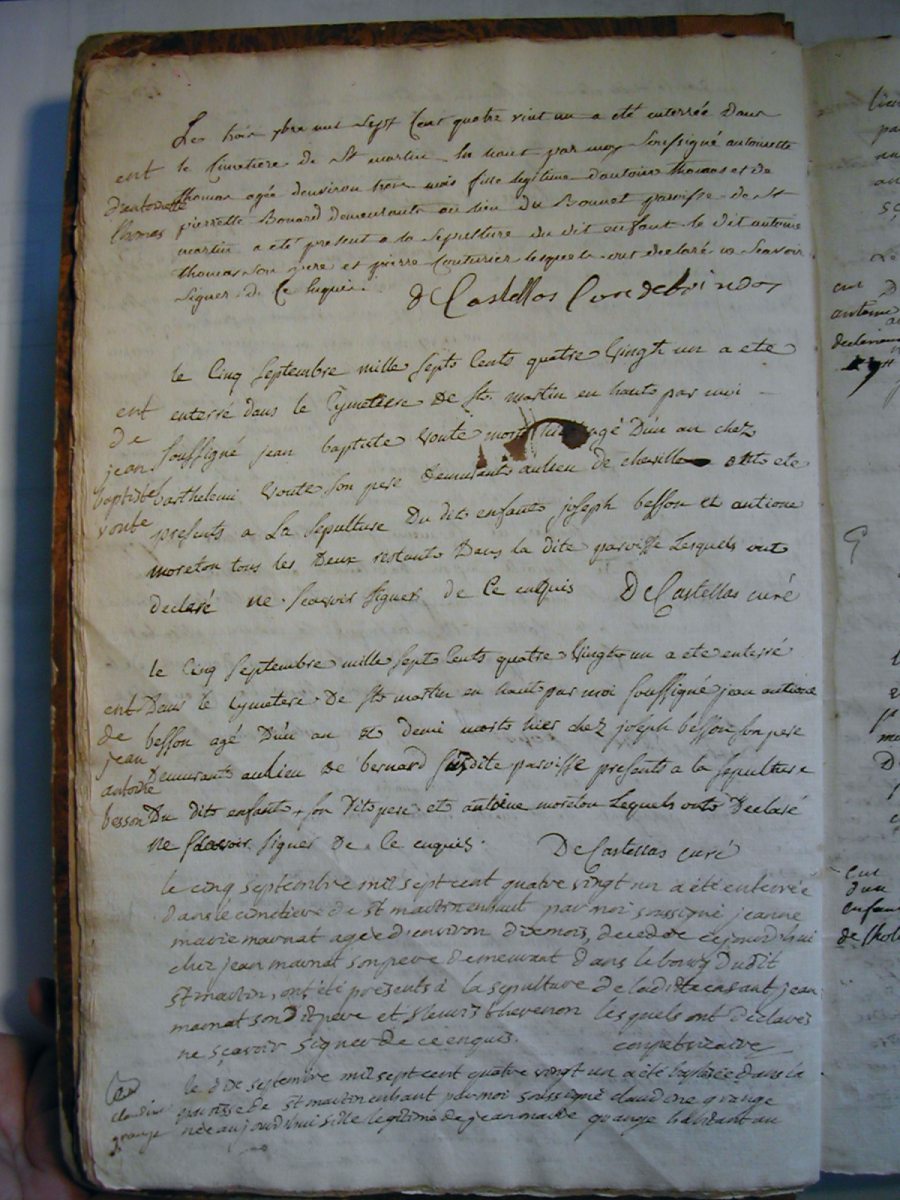 Le trois 7bre mil Sept Cent quatre vint un a été enterrée dans
ent le Cimetière de St martin En haut par moy Soussigné antoinette
d'antoinette thomas agée denviron trois mois fille legitime d'antoine thomas et de
thomas pierrette Bonard demeurants au lieu du Bonnet paroisse de St
martin a été présent a la Sepulture du dit enfant le dit antoine
thomas son pere et pierre Couturier lesquels ont declaré ne Scavoir
Signer de Ce Enquis. de Castellas Curé
le Cinq Septembre mille Septs Cents quatre Vingt un a ete
ent enterré dans le Cymetiere De St. martin en hauts par moi
de Soussigné jean baptiste Voute mort hier agé D'un an chez
jean
baptiste barthelemi Voute Son pere Demeurants au lieu de ete
voute presents a La Sepulture Du dits enfants joseph besson et antione
moreton tous les Deux restants Dans la dite paroisse Lesquels onts
declaré ne Scavoir Signer de Ce enquis De Castellas curé
le Cinq Septembre mille Septs Cents quatre Vingts un a ete enterré
ent Dans le Cymetere De Sts martin en haut par moi Soussigné jean antione
de besson agé D'un an et demi morts hier chez joseph besson Son pere
jean Demeurants au lieu De bernard Susdite paroisse presents a la Sepulture
antoine
besson Du dits enfants, Son Dits pere et antione moreton Lequels onts Declaré
ne Scavoir Signer De Ce enquis. De Castellas curé
le cinq septembre mil sept cent quatre vingt un a été enterrée
dans le cimetiere de st martin en haut par moi soussigné jeanne
marie marnat agée d'environ dix mois, decedée ce jourd'hui
chez jean marnat son pere demeurant dans le bourg dudit
st martin, ont été présents à la sepulture de la dite enfant jean
marnat son dit pere et fleuri thevenon lesquels ont déclarés
ne sçavoir signer de ce enquis. vicaire
le dix septembre mil sept cent quatre vingt un a été baptisée dans la
claudine paroisse de st martin en haut par moi soussigné claudine grange
grange née aujourd'hui fille legitime de jean marie grange habitant au
ent
antoine
ent
d'un
enfant